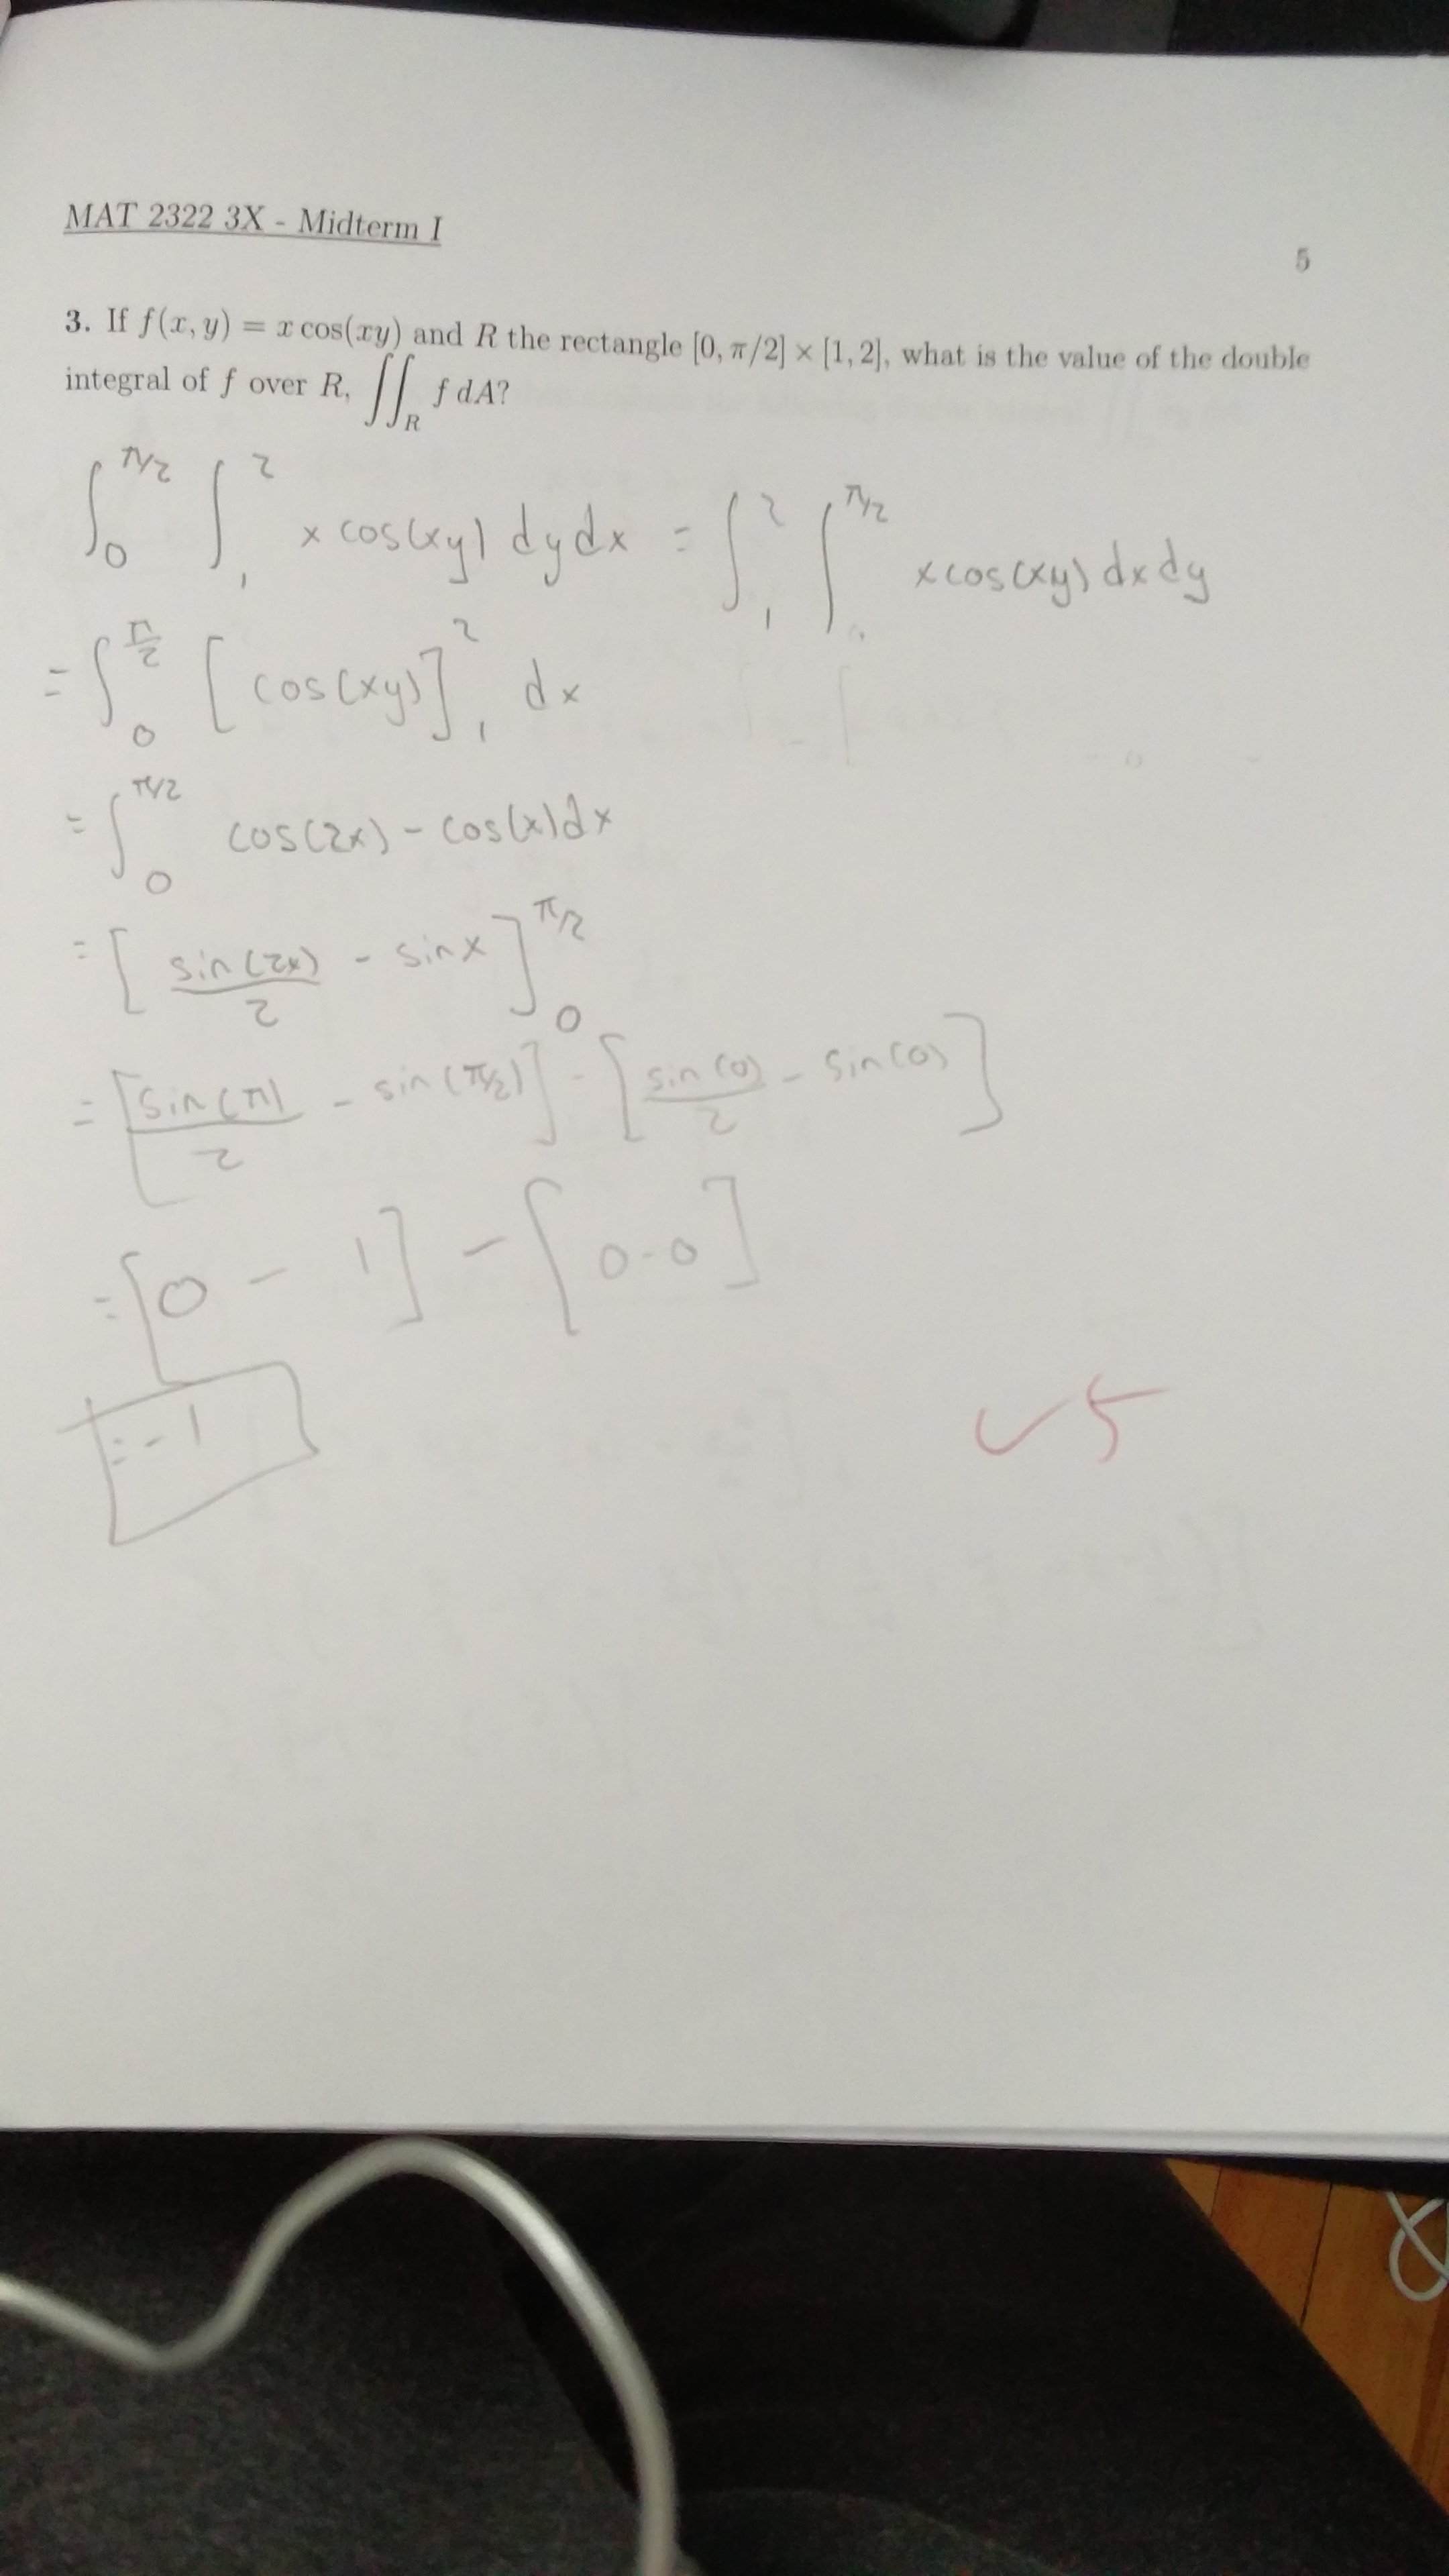 MAT 2322 3X - Midterm I
5
3. If f(x, y) = x cos(xy) and R the rectangle [0, π/2] × [1, 2], what is the value of the double
integral of f over R, ∬_R f dA?
∫_0^{π/2} ∫_1^2 x cos(xy) dy dx = ∫_1^2 ∫_0^{π/2} x cos(xy) dx dy
= ∫_0^{π/2} [cos(xy)]_1^2 dx
= ∫_0^{π/2} cos(2x) - cos(x) dx
= [sin(2x)/2 - sin x]_0^{π/2}
= [sin(π)/2 - sin(π/2)] - [sin(0)/2 - sin(0)]
= [0 - 1] - [0-0]
= -1
✓5